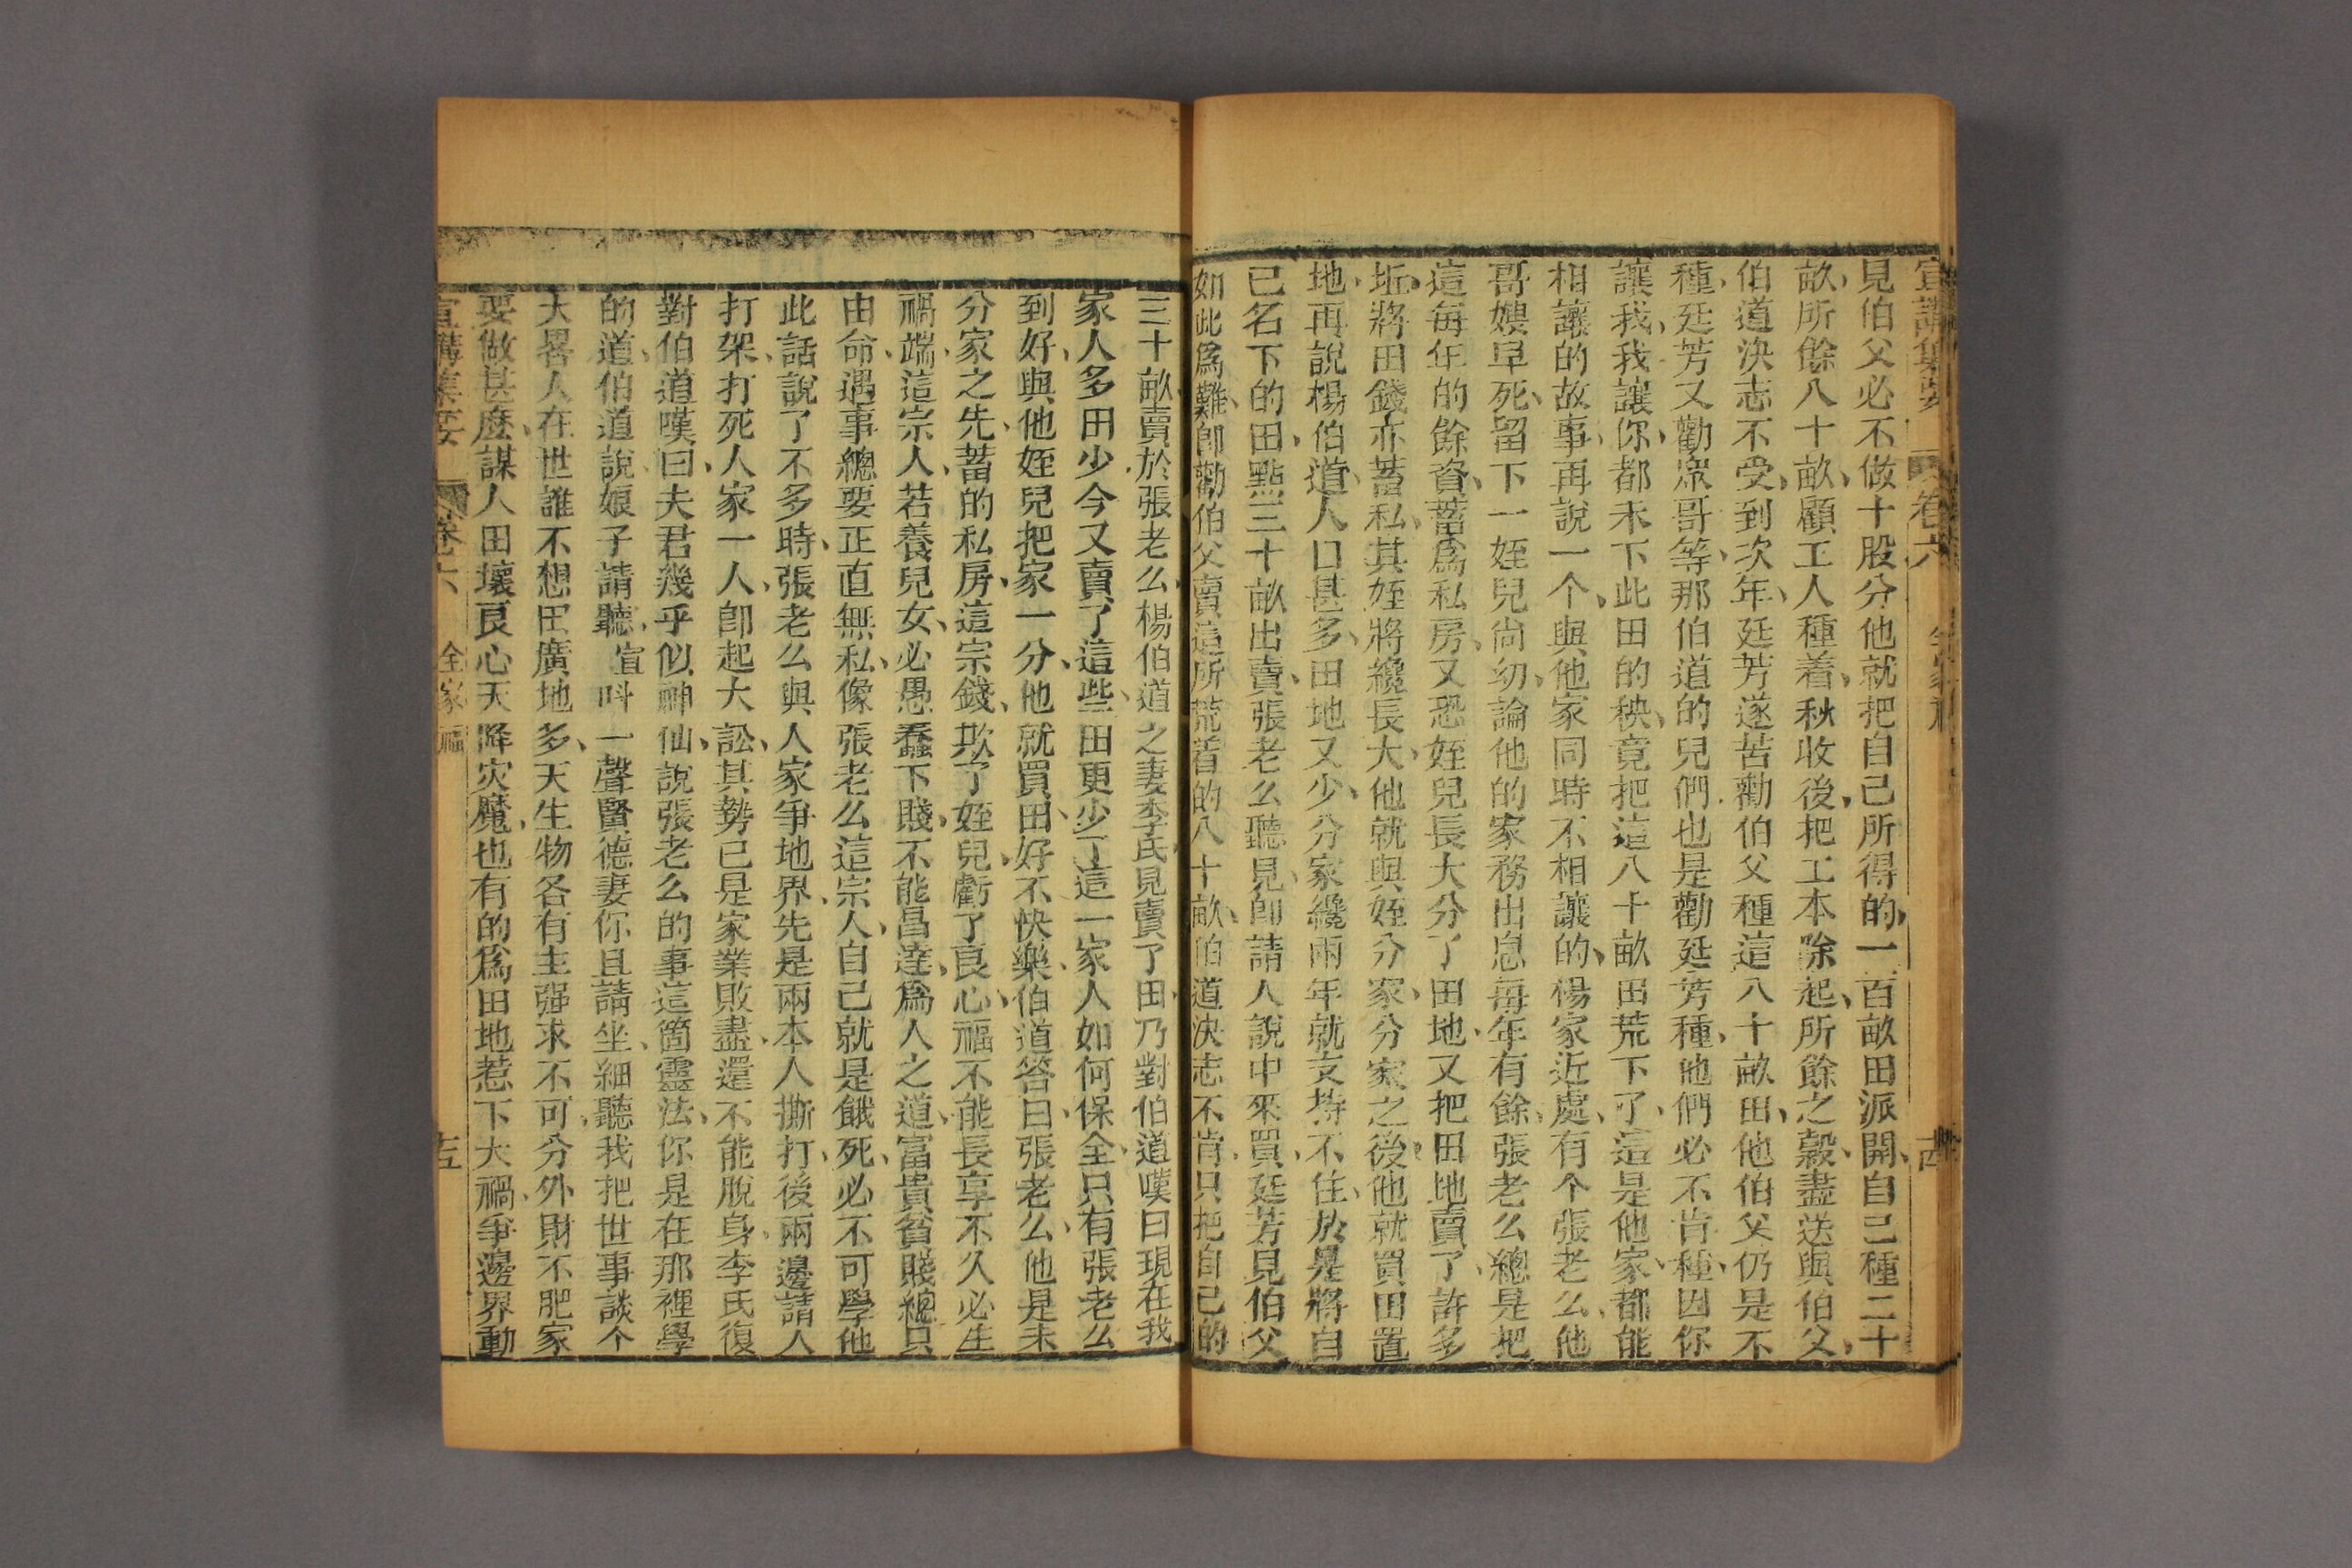 宣講集要 卷六 全家福 十四
見伯父必不做十股分他就把自己所得的、一百畝田派開、自己種二十
畝、所餘八十畝、顧工人種着、秋收後、把工本除起、所餘之穀、盡送與伯父、
伯道決志不受、到次年、廷芳遂苦勸伯父種這八十畝田、他伯父仍是不
種、廷芳又勸眾哥等、那伯道的兒們、也是勸廷芳種、他們必不肯種、因你
讓我、我讓你、都未下此田的秧、竟把這八十畝田荒下了、這是他家、都能
相讓的故事、再說一个、與他家同時不相讓的、楊家近處、有个張老么、他
哥嫂早死、留下一姪兒尚幼、論他的家務出息每年有餘、張老么總是把
這每年的餘資、蓄爲私房、又恐姪兒長大分了田地、又把田地賣了、許多
坵、將田錢亦蓄私、其姪將纔長大、他就與姪分家、分家之後、他就買田置
地、再說楊伯道、人口甚多、田地又少、分家纔兩年就支持不住、於是將自
已名下的田、點三十畝出賣、張老么聽見、卽請人說中來買、廷芳見伯父
如此爲難、卽勸伯父賣這所荒着的八十畝、伯道決志不肯、只把自己的
三十畝、賣於張老么、楊伯道之妻李氏、見賣了田、乃對伯道嘆曰、現在我
家人多田少、今又賣了這些、田更少了、這一家人如何保全、只有張老么
到好、與他姪兒把家一分、他就買田、好不快樂、伯道答曰、張老么、他是未
分家之先、蓄的私房、這宗錢、欺了姪兒、虧了良心、福不能長享、不久必生
禍端、這宗人、若養兒女、必愚蠢下賤、不能昌達、爲人之道、富貴貧賤、總只
由命、遇事總要正直無私、像張老么這宗人、自己就是餓死、必不可學他
此話說了不多時、張老么與人家爭地界、先是兩本人撕打、後兩邊請人
打架、打死人家一人、卽起大訟、其勢已是家業敗盡、還不能脫身、李氏復
對伯道嘆曰、夫君幾乎似神仙、說張老么的事、這箇靈法、你是在那裡學
的道、伯道說娘子請聽、宣 呌一聲賢德妻你且請坐、細聽我把世事談个
大畧、人在世誰不想田廣地多、天生物各有主强求不可、分外財不肥家
要做甚麽、謀人田壞良心天降灾魔、也有的爲田地惹下大禍、爭邊界動
宣講集要 卷六 全家福 十五